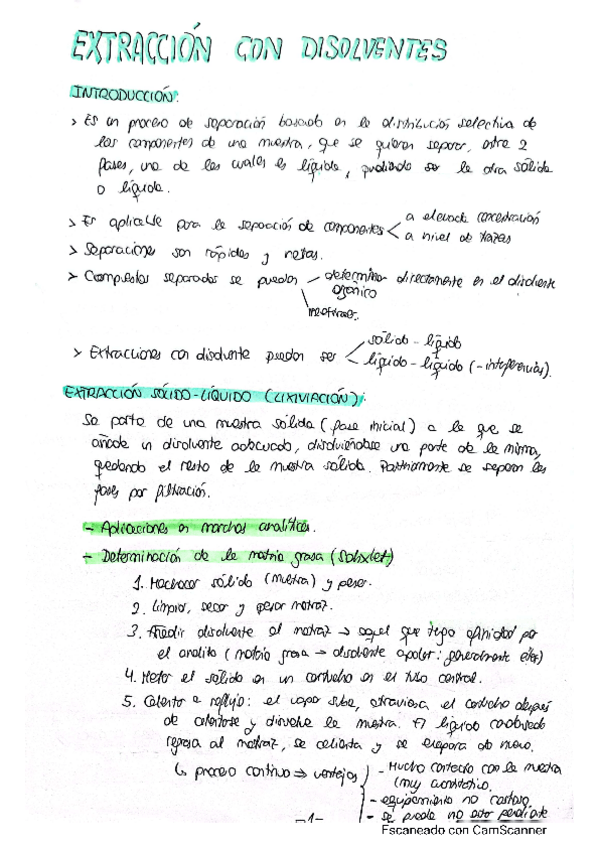 EXTRACCIÓN CON DISOLVENTES
INTRODUCCIÓN:
> Es un proceso de separación basado en la distribución selectiva de
los componentes de una muestra, que se quieren separar, entre 2
fases, una de las cuales es líquida, pudiendo ser la otra sólida
o líquida.
> Es aplicable para la separación de componentes < a elevada concentración
a nivel de trazas
> Separaciones son rápidas y netas.
> Compuestos separados se pueden determinar directamente en el disolvente
orgánico
> Extracciones con disolvente pueden ser < sólido - líquido
líquido - líquido (- interferencias).
EXTRACCIÓN SÓLIDO-LÍQUIDO (LIXIVIACIÓN):
Se parte de una muestra sólida (fase inicial) a la que se
añade un disolvente adecuado, disolviéndose una parte de la misma,
quedando el resto de la muestra sólida. Posteriormente se separan las
fases por filtración.
- Aplicaciones en marchas analíticas.
- Determinación de la materia grasa (Sohxlet)
1. Machacar sólido (muestra) y pesar.
2. Limpiar, secar y pesar matraz.
3. Añadir disolvente al matraz → aquel que tenga afinidad por
el analito (materia grasa → disolvente apolar: generalmente éter)
4. Meter el sólido en un cartucho en el tubo central.
5. Calentar a reflujo: el vapor sube, atraviesa el cartucho después
de calentarse y disuelve la muestra. El líquido condensado
regresa al matraz, se calienta y se evapora de nuevo.
↳ proceso continuo ⇒ ventajas - Mucho contacto con la muestra
(muy cuantitativo.
- equipamiento no costoso
- se puede no estar pendiente
-1-
Escaneado con CamScanner